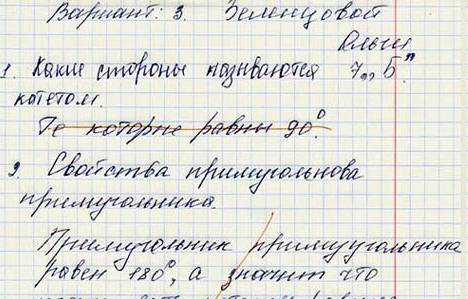 Вариант: 3. Зеленцовой
Ольги
1. Какие стороны называются 7 „Б"
катетом.
Те которые равны 90°.
2. Свойства примугольнова
примугольника.
Примугольник примугольника
равен 180°, а значит что